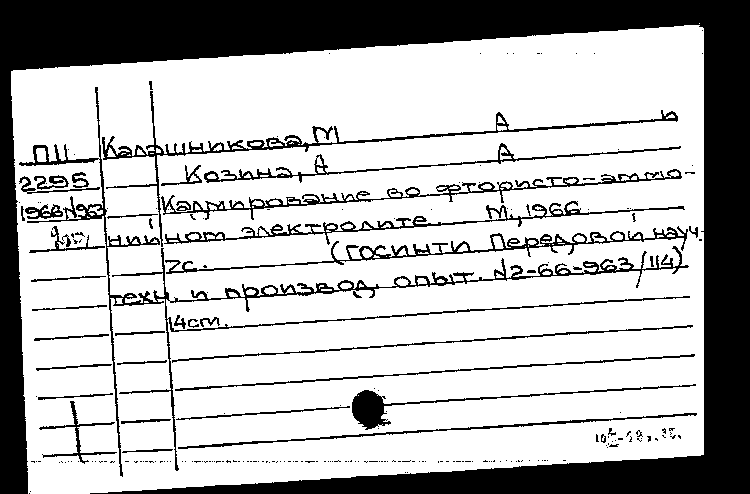 П11 Калашникова, М А и
2295 Козина, А А
1966 №963 Кадмирование во фтористо-аммо-
нийном электролите. М., 1966
7с. (ГОСИНТИ Передовой науч.-
техн. и производ. опыт. №2-66-963/114)
14см.